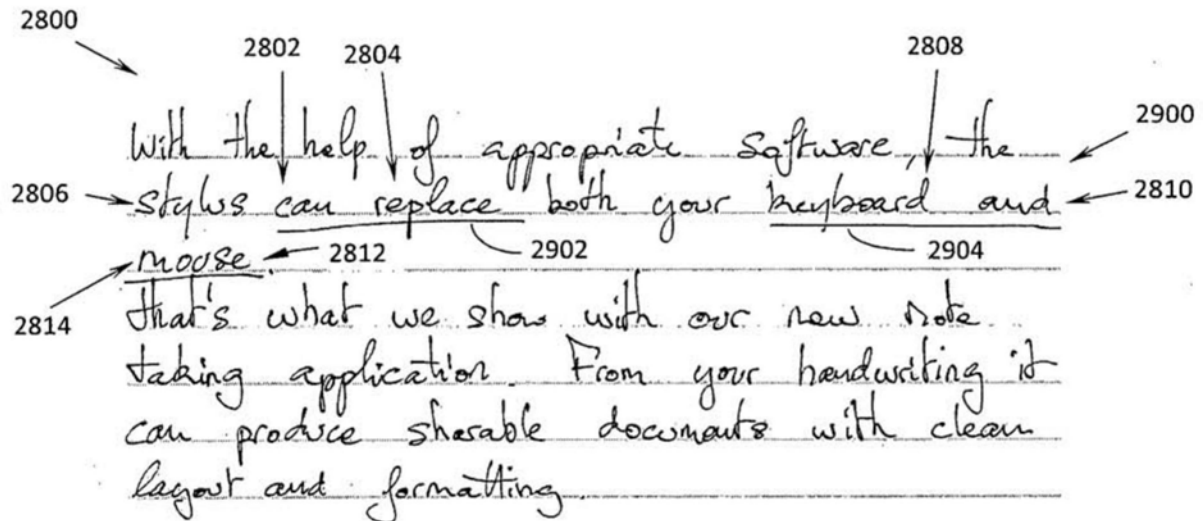 2800
2802 2804 2808
2900
With the help of appropriate Software, the
2806 stylus can replace both your keyboard and 2810
mouse. 2812 2902 2904
2814
that's what we show with our new note
taking application. From your handwriting it
can produce sharable documents with clean
layout and formatting.